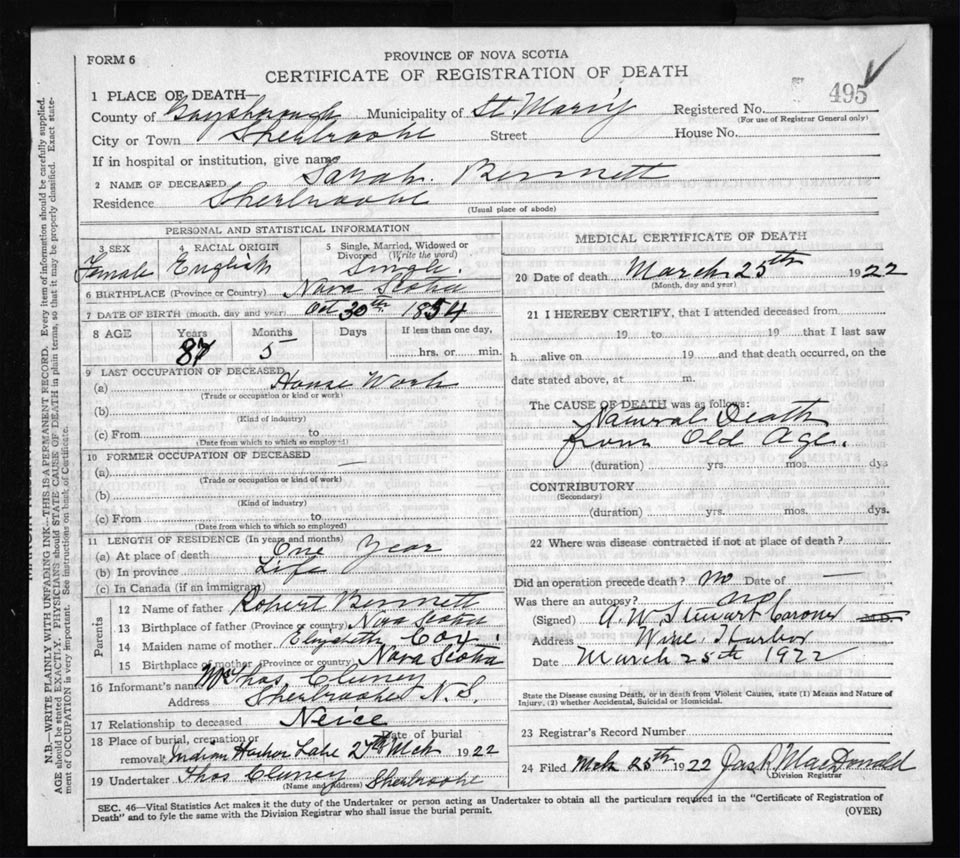 FORM 6
PROVINCE OF NOVA SCOTIA
CERTIFICATE OF REGISTRATION OF DEATH
495
1 PLACE OF DEATH—
County of Guysborough Municipality of St. Mary's Registered No.
(For use of Registrar General only)
City or Town Sherbrooke Street House No.
If in hospital or institution, give name
2 NAME OF DECEASED Sarah Bennett
Residence Sherbrooke
(Usual place of abode)
PERSONAL AND STATISTICAL INFORMATION
3 SEX Female
4 RACIAL ORIGIN English
5 Single, Married, Widowed or Divorced (Write the word) Single.
6 BIRTHPLACE (Province or Country) Nova Scotia
7 DATE OF BIRTH (month, day and year) Oct 30th 1854
8 AGE Years Months Days If less than one day,
87 5 hrs. or min.
9 LAST OCCUPATION OF DECEASED
(a) House Work
(Trade or occupation or kind or work)
(b)
(Kind of industry)
(c) From to
(Date from which to which so employed)
10 FORMER OCCUPATION OF DECEASED
(a) —
(Trade or occupation or kind of work)
(b)
(Kind of industry)
(c) From to
(Date from which to which so employed)
11 LENGTH OF RESIDENCE (In years and months)
(a) At place of death One Year
(b) In province Life
(c) In Canada (if an immigrant)
Parents
12 Name of father Robert Bennett
13 Birthplace of father (Province or country) Nova Scotia
14 Maiden name of mother Elizabeth Cox.
15 Birthplace of mother (Province or country) Nova Scotia
16 Informant's name Mrs Thos. Cluney
Address Sherbrooke N.S.
17 Relationship to deceased Neice
18 Place of burial, cremation or removal Date of burial
Indian Harbor Lake 27th Mch 1922
19 Undertaker Thos Cluney Sherbrooke
(Name and address)
MEDICAL CERTIFICATE OF DEATH
20 Date of death March 25th 1922
(Month, day and year)
21 I HEREBY CERTIFY, that I attended deceased from
19 to 19 that I last saw
h alive on 19 and that death occurred, on the
date stated above, at m.
The CAUSE OF DEATH was as follows:
Natural Death
from Old Age.
(duration) yrs. mos. dys
CONTRIBUTORY
(Secondary)
(duration) yrs. mos. dys.
22 Where was disease contracted if not at place of death?
Did an operation precede death? no Date of —
Was there an autopsy? no
(Signed) A. W. Stewart Coroner
Address Wine Harbor
Date March 25th 1922
State the Disease causing Death, or in death from Violent Causes, state (1) Means and Nature of
Injury, (2) whether Accidental, Suicidal or Homicidal.
23 Registrar's Record Number
24 Filed Mch 25th 1922 Jas A MacDonald
Division Registrar
SEC. 46—Vital Statistics Act makes it the duty of the Undertaker or person acting as Undertaker to obtain all the particulars required in the "Certificate of Registration of
Death" and to fyle the same with the Division Registrar who shall issue the burial permit.
(OVER)
N.B.—WRITE PLAINLY WITH UNFADING INK—THIS IS A PERMANENT RECORD. Every item of information should be carefully supplied.
AGE should be stated EXACTLY. PHYSICIANS should STATE CAUSE OF DEATH in plain terms, so that it may be properly classified. Exact state-
ment of OCCUPATION is very important. See instructions on back of Certificate.